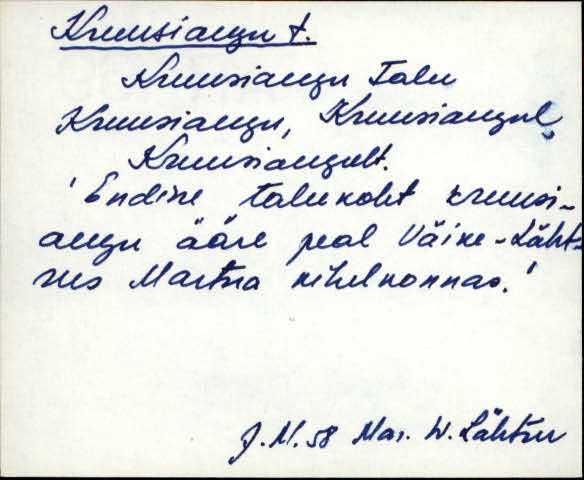 Kruusiaugu t.
Kruusiaugu talu
Kruusiaugu, Kruusiaugul,
Kruusiaugult.
'Endine talukoht kruusi-
augu ääre peal Väike-Läht-
rus Martna kihelkonnas.'
J.M. 58 Mar. W. Lähtru